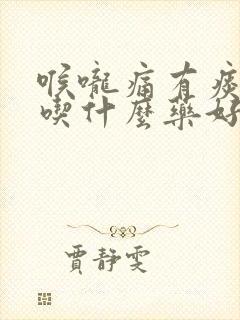 喉嚨痛有痰
喫什麼藥好
賈靜雯